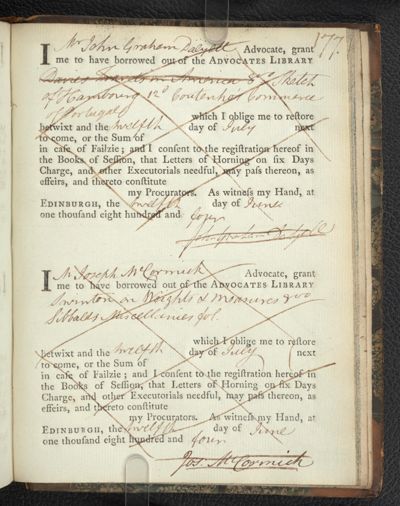 177.
I Mr John Graham Dalyell Advocate, grant
me to have borrowed out of the ADVOCATES LIBRARY
Davies Travels in America 8vo Sketch
of Hambourg 12o Coutenho's Commerce
of Portugal
which I oblige me to reſtore
betwixt and the twelfth day of July next
to come, or the Sum of
in caſe of Failzie; and I conſent to the regiſtration hereof in
the Books of Seſſion, that Letters of Horning on ſix Days
Charge, and other Executorials needful, may paſs thereon, as
effeirs, and thereto conſtitute
my Procurators. As witneſs my Hand, at
EDINBURGH, the twelfth day of June
one thouſand eight hundred and four
John Graham Dalyell
I Mr Joseph McCormick Advocate, grant
me to have borrowed out of the ADVOCATES LIBRARY
Swinton on Weights & measures 8vo
Sibbalds Miscellanies fol.
which I oblige me to reſtore
betwixt and the twelfth day of July next
to come, or the Sum of
in caſe of Failzie; and I conſent to the regiſtration hereof in
the Books of Seſſion, that Letters of Horning on ſix Days
Charge, and other Executorials needful, may paſs thereon, as
effeirs, and thereto conſtitute
my Procurators. As witneſs my Hand, at
EDINBURGH, the twelfth day of June
one thouſand eight hundred and four
Jos. McCormick